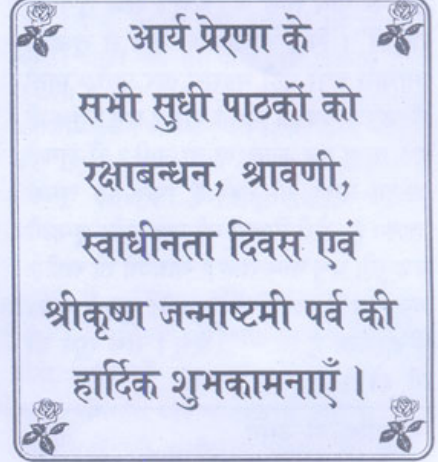 आर्य प्रेरणा के
सभी सुधी पाठकों को
रक्षाबन्धन, श्रावणी,
स्वाधीनता दिवस एवं
श्रीकृष्ण जन्माष्टमी पर्व की
हार्दिक शुभकामनाएँ ।